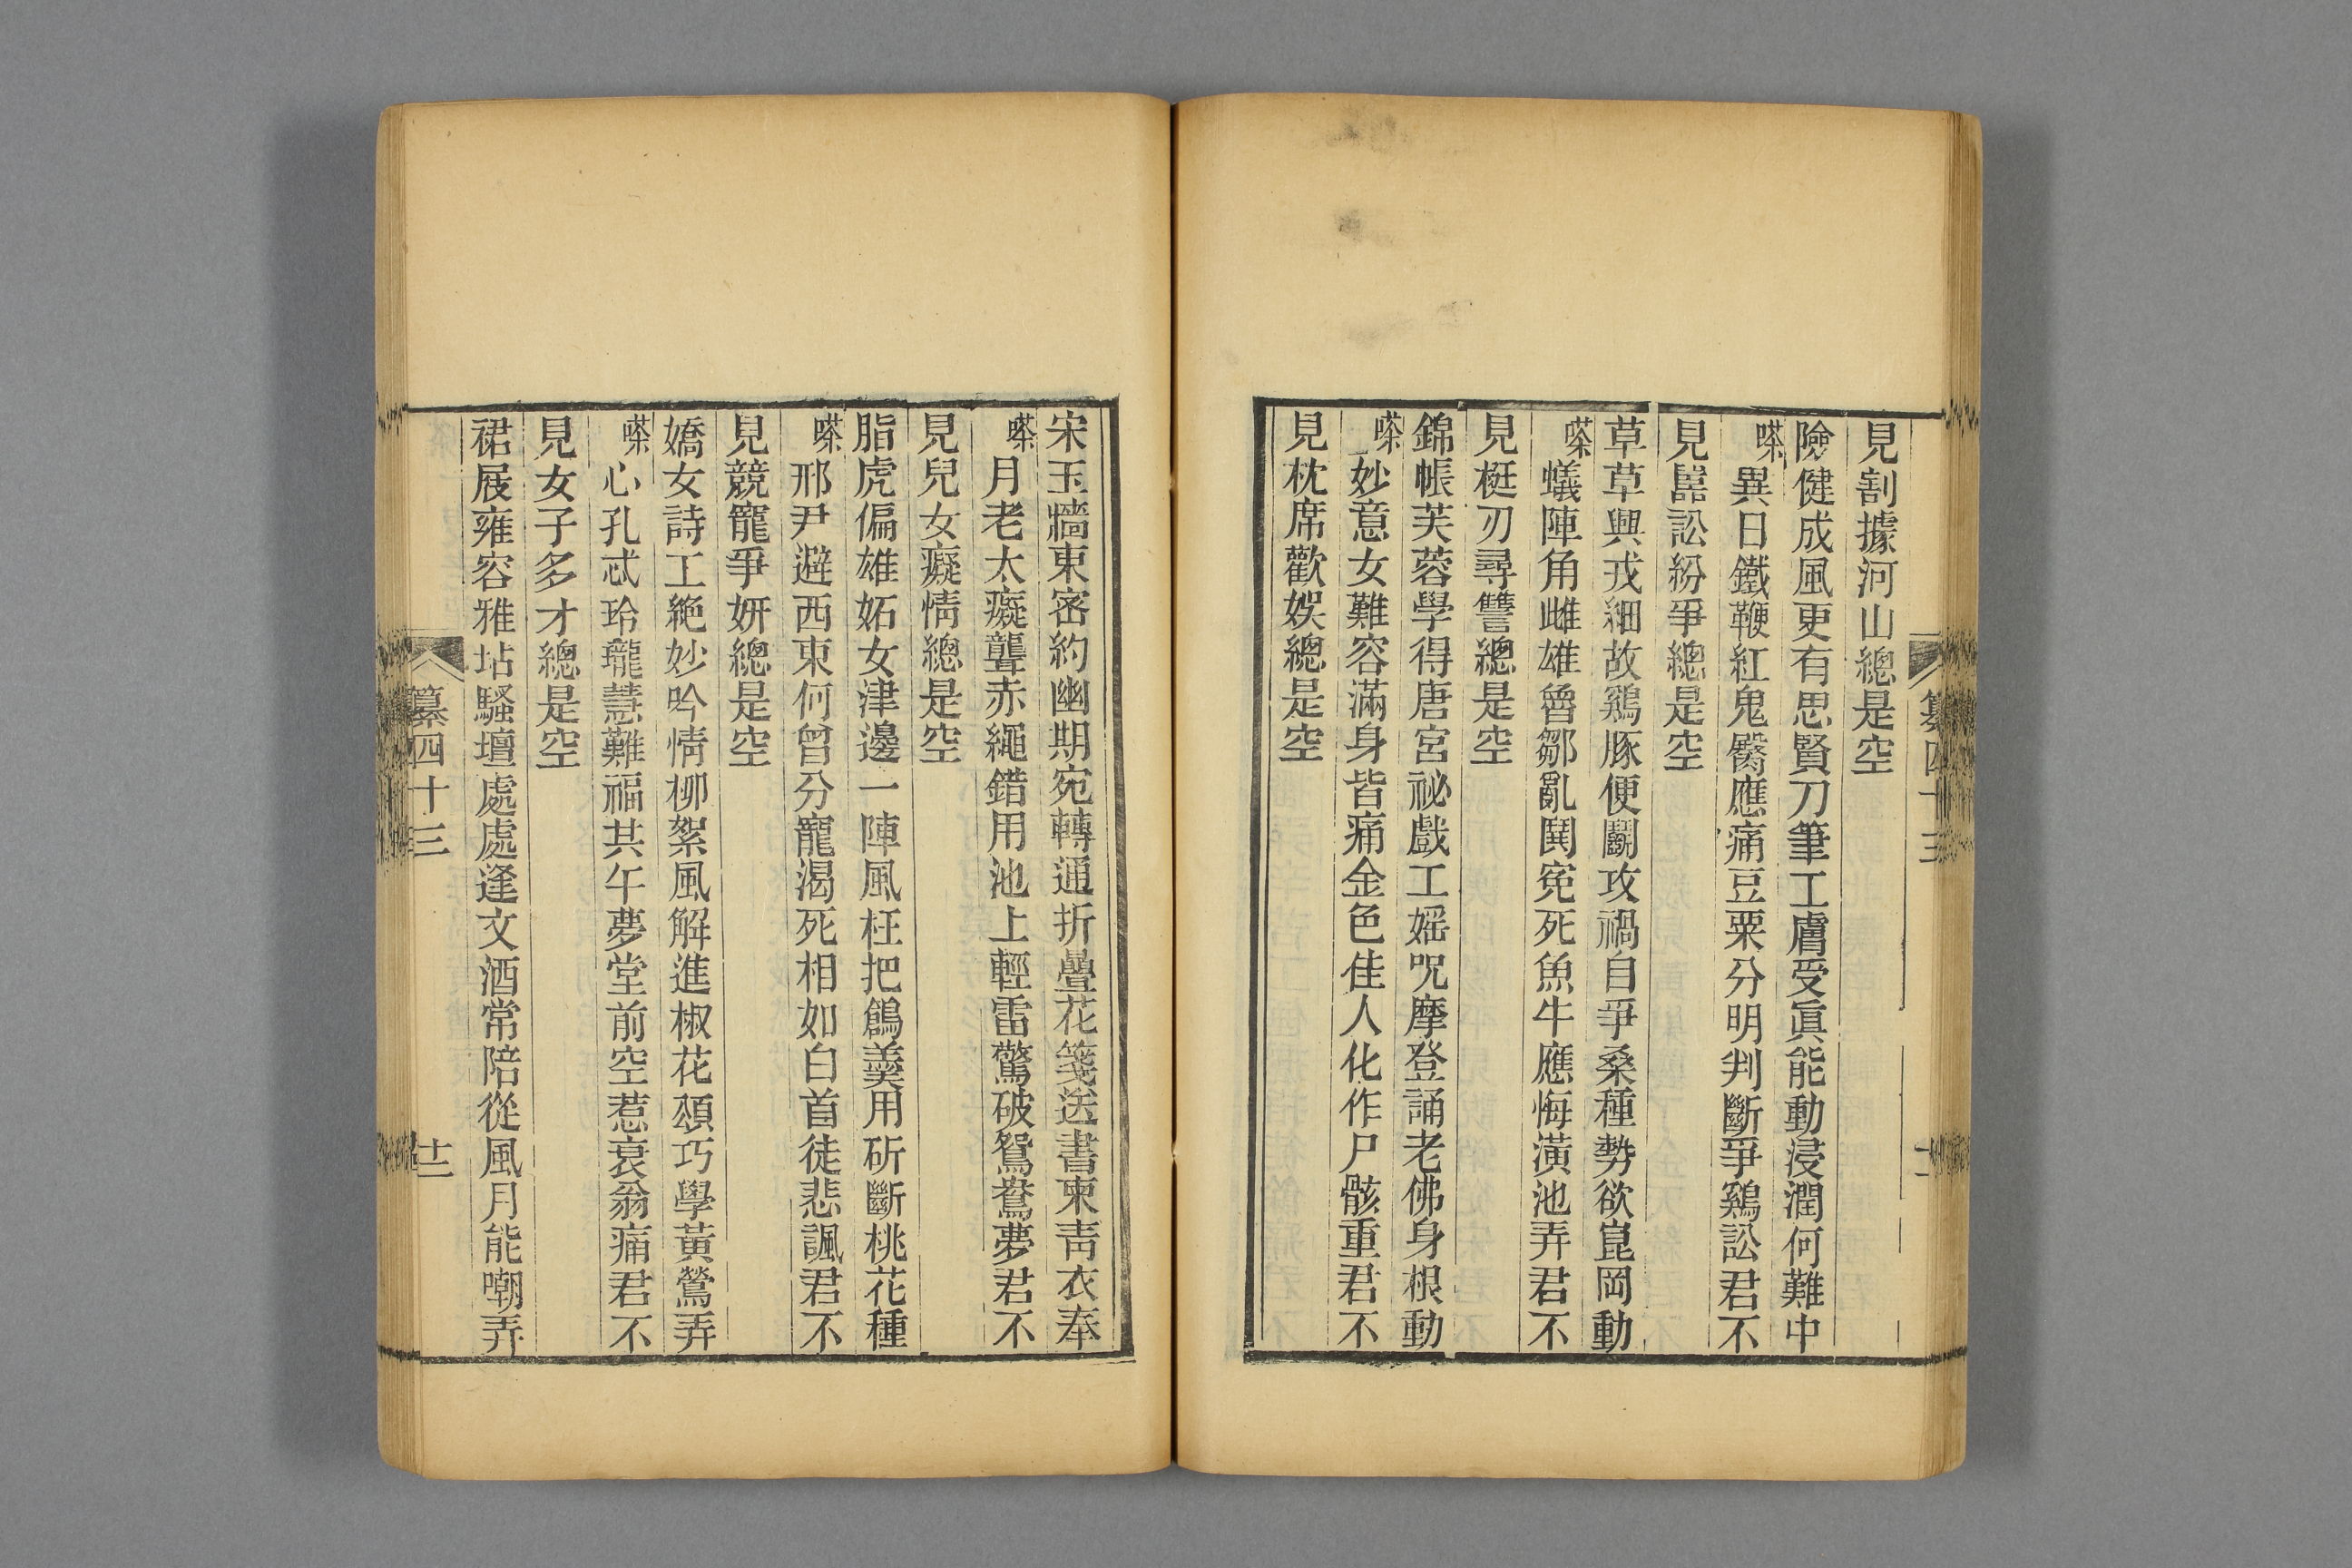 見割據河山總是空
險健成風更有思賢刀筆工膚受眞能動浸潤何難中
嗏異日鐵鞭紅鬼臀應痛豆粟分明判斷爭鷄訟君不
見嚚訟紛爭總是空
草草興戎細故鷄豚便鬬攻禍自爭桑種勢欲崑岡動
嗏蟻陣角雌雄魯鄒亂鬨寃死魚牛應悔潢池弄君不
見梃刃尋讐總是空
錦帳芙蓉學得唐宮祕戲工婬呪摩登誦老佛身根動
嗏妙意女難容滿身皆痛金色佳人化作尸骸重君不
見枕席歡娛總是空
宋玉牆東密約幽期宛轉通折疊花箋送書柬靑衣奉
嗏月老太癡聾赤繩錯用池上輕雷驚破鴛鴦夢君不
見兒女癡情總是空
脂虎偏雄妬女津邊一陣風枉把鶬羹用斫斷桃花種
嗏邢尹避西東何曾分寵渴死相如白首徒悲諷君不
見競寵爭妍總是空
嬌女詩工絶妙吟情柳絮風解進椒花頌巧學黃鶯弄
嗏心孔忒玲瓏慧難福共午夢堂前空惹衰翁痛君不
見女子多才總是空
裙屐雍容雅坫騷壇處處逢文酒常陪從風月能嘲弄
纂四十三
十二